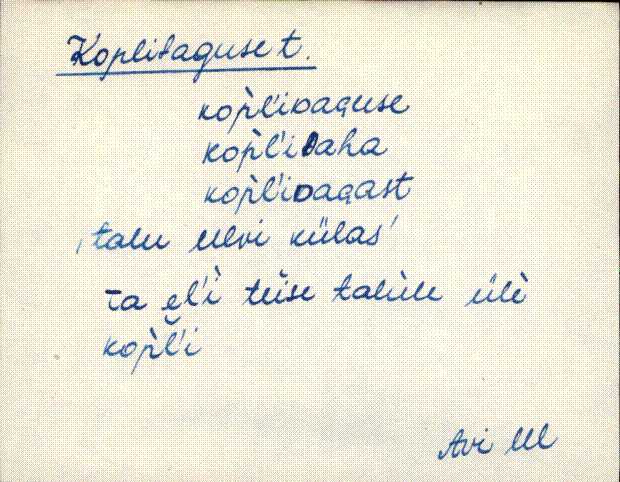 Koplitaguset.
kop̀l'iDaguse
kop̀l'iDaha
kop̀l'iDagast
'talu Ulvi külas'
ta el'ì teise talule ülè
kop̀l'i
Avi Ul